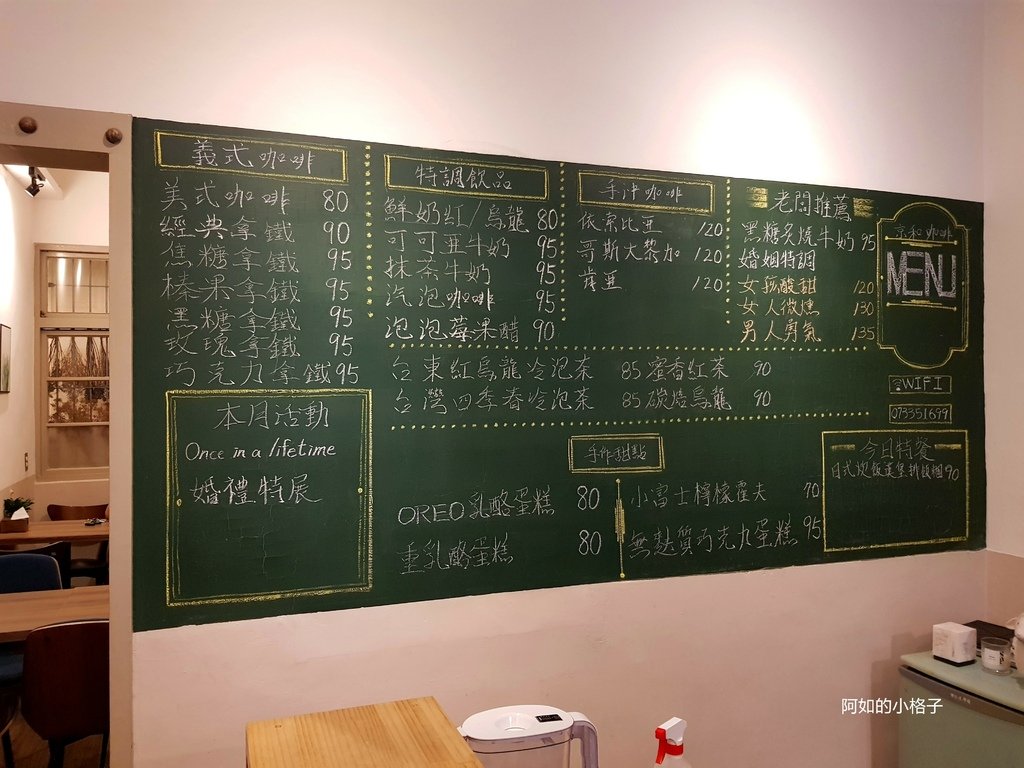 義式咖啡
美式咖啡 80
經典拿鐵 90
焦糖拿鐵 95
榛果拿鐵 95
黑糖拿鐵 95
玫瑰拿鐵 95
巧克力拿鐵 95
本月活動
Once in a lifetime
婚禮特展
特調飲品
鮮奶紅/烏龍 80
可可亞牛奶 95
抹茶牛奶 95
汽泡咖啡 95
泡泡莓果醋 90
手沖咖啡
依索比亞 120
哥斯大黎加 120
肯亞 120
老闆推薦
黑糖炙燒牛奶 95
婚姻特調
女孩酸甜 120
女人微醺 130
男人勇氣 135
台東紅烏龍冷泡茶 85 蜜香紅茶 90
台灣四季春冷泡茶 85 碳焙烏龍 90
手作甜點
OREO乳酪蛋糕 80
重乳酪蛋糕 80
小富士檸檬霍夫 70
無麩質巧克力蛋糕 95
京和咖啡
MENU
WIFI
073351699
今日特餐
90
阿如的小格子